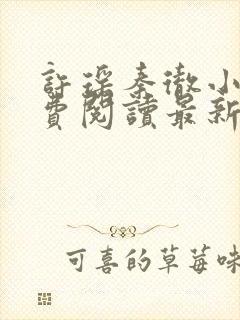 許瑤秦徹小
費閱讀最新
可喜的草莓味